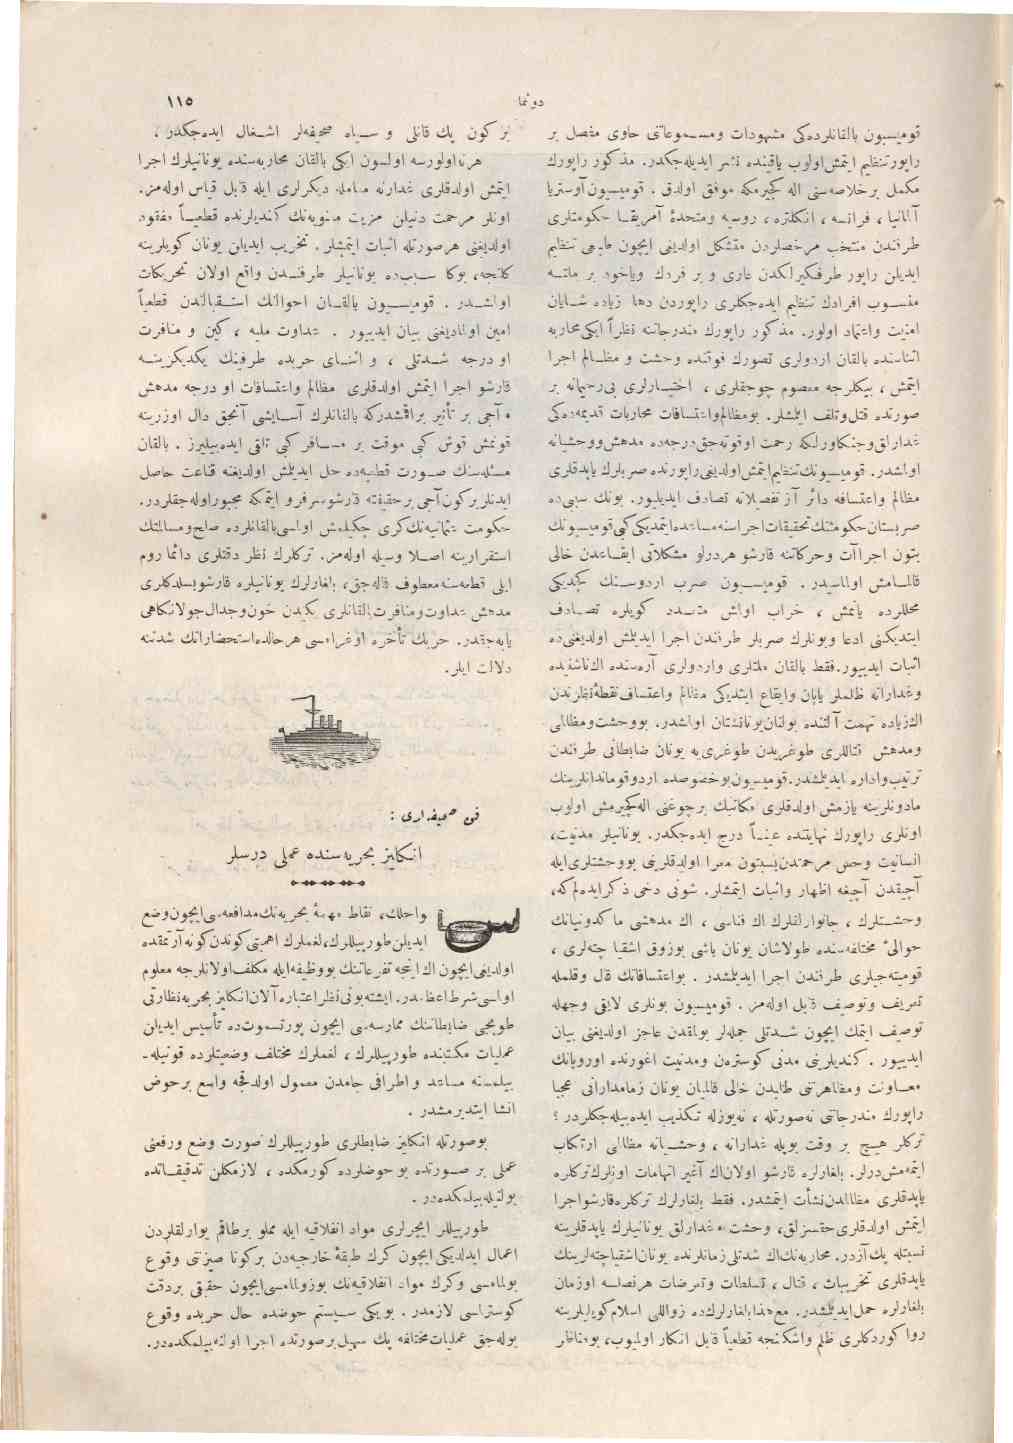 دوننما
١١٥
قوميسيون بالقانلرده‌كى مشهودات ومسموعاتى حاوى مفصل بر
راپور تنظيم ايتمش اولوب ياقينده نشر ايديله‌جكدر. مذكور راپورك
مكمل بر خلاصه‌سنى اله كچيرمكه موفق اولدق . قوميسيون آوستريا
آلمانيا ، فرانسه ، انكلتره ، روسيه ومتحدهٔ آمريقا حكومتلرى
طرفندن منتخب مرخصلردن متشكل اولديغى ايچون طبيعى تنظيم
ايديلن راپور طرفكيرلكدن عارى و بر فردك وياخود بر ملته
منسوب افرادك تنظيم ايده‌جكلرى راپوردن دها زياده شايان
امنيت واعتماد اولور. مذكور راپورك مندرجاتنه نظراً ايكى محاربه
اثناسنده بالقان اردولرى تصورك فوقنده وحشت و مظالم اجرا
ايتمش ، بيكلرجه معصوم چوجقلرى ، اختيارلرى بى‌رحمانه بر
صورتده قتل وتلف ايتمشلر. بومظالم واعتسافات محاربات قديمه‌ده‌كى
غدارلق وجنكاورلكه رحمت اوقوته‌جق درجه‌ده مدهش ووحشيانه
اولمشدر. قوميسيونك تنظيم ايتمش اولديغى راپورنده صربلرك ياپدقلرى
مظالم واعتسافه دائر آز تفصيلاته تصادف ايديليور. بونك سببى ده
صربستان حكومتنك تحقيقات اجراسنه مساعده ايتمديكى كبى قوميسيونك
بتون اجراآت وحركاتنه قارشو هر درلو مشكلاتى ايقاعدن خالى
قالمامش اولماسيدر. قوميسيون صرب اردوسنك كچديكى
محللرده يانمش ، خراب اولمش متعدد كويلره تصادف
ايتديكنى ادعا وبونلرك صربلر طرفندن اجرا ايديلمش اولديغنى ده
اثبات ايدييور. فقط بالقان ملتلرى واردولرى آره‌سنده اك ناشنيده
وغدارانه ظلملر ياپان وايقاع ايتديكى مظالم واعتساف نقطهٔ نظرندن
اك زياده تهمت آلتنده بولنان يونانستان اولمشدر. بووحشت ومظالمى
ومدهش قتاللرى طوغريدن طوغرى‌يه يونان ضابطانى طرفندن
ترتيب واداره ايديلمشدر. قوميسيون بو خصوصده اردو قوماندانلرينك
مادونلرينه يازمش اولدقلرى مكاتيبك برچوغنى اله كچيرمش اولوب
اونلرى راپورك نهايتنده عيناً درج ايده‌جكدر. يونانيلر مدنيت،
انسانيت وحس مرحمتدن بستبتون معرا اولدقلرينى بووحشتلرى ايله
آچيقدن آچيغه اظهار واثبات ايتمشلر. شونى دخى ذكر ايده‌لم كه،
وحشتلرك ، جانوارلقلرك اك فناسى ، اك مدهشى ماكدونيانك
حوالئ مختلفه‌سنده طولاشان يونان باشى بوزوق اشقيا چته‌لرى ،
قوميته‌جيلرى طرفندن اجرا ايديلمشدر . بواعتسافاتك قال وقلمله
تعريف وتوصيف قابل اوله‌مز. قوميسيون بونلرى لايقى وجهله
توصيف ايتمك ايچون شدتلى جمله‌لر بولمقدن عاجز اولديغنى بيان
ايدييور . كنديلرينى مدنى كوسترەن ومدنيت اغورنده اوروپانك
معاونت ومظاهرتنى طلبدن خالى قالميان يونان زمامدارانى عجبا
راپورك مندرجاتنى نه‌صورتله ، نه‌يوزله تكذيب ايده‌بيله‌جكلردر ؟
تركلر هيچ بر وقت بويله غدارانه ، وحشيانه مظالمى ارتكاب
ايتمه‌مشدرلر. بلغارلره قارشو اولان اك آغير اتهامات اونلرك تركلره
ياپدقلرى مظالمدن نشأت ايتمشدر. فقط بلغارلرك تركلره قارشو اجرا
ايتمش اولدقلرى حقسزلق، وحشت، غدارلق يونانيلرك ياپدقلرينه
نسبتله پك آزدر. محاربه‌نك اك شدتلى زمانلرنده يونان اشقيا چته‌لرينك
ياپدقلرى تخريبات ، قتال ، تسلطات وتعرضات هر نصلسه اوزمان
بلغارلره حمل ايديلمشدر. مع‌هذا بلغارلرك ده زواللى اسلام كويليلرينه
روا كوردكلرى ظلم واشكنجه قطعياً قابل انكار اولميوب، بومناظر
بر كون پك قانلى و سياه صحيفه‌لر اشغال ايده‌جكدر ،
هر نه اولورسه اولسون ايكى بالقان محاربه‌سنده يونانيلرك اجرا
ايتمش اولدقلرى غدارنه معامله ديكرلرى ايله قابل قياس اوله‌مز.
اونلر مرحمت دنيلن مزيت معنويه‌نك كنديلرنده قطعياً مفقود
اولديغنى هرصورتله اثبات ايتمشلر. تخريب ايديلن يونان كويلرينه
كلنجه، بوكا سبب‌ده يونانيلر طرفندن واقع اولان تحريكات
اولمشدر . قوميسيون بالقان احوالنك استقبالندن قطعياً
امين اولمديغنى بيان ايدييور . عداوت مليه ، كين و منافرت
او درجه شدتلى ، و اثناى حربده طرفينك يكديكرينه
قارشو اجرا ايتمش اولدقلرى مظالم واعتسافات او درجه مدهش
، آجى بر تأثير براقمشدركه بالقانلرك آسايشى آنجق دال اوزرينه
قونمش قوش كبى موقت بر مسافر كبى تلقى ايده‌بيليرز . بالقان
مسئله‌سنك صورت قطعيه‌ده حل ايديلمش اولديغنه قناعت حاصل
ايدنلر بركون آجى برحقيقته قارشو سرفرو ايتمكه مجبور اوله‌جقلردر.
حكومت عثمانيه‌نك كرى چكيلمش اولمسى بالقانلرده صلح ومسالمتك
استقرارينه اصلا وسيله اوله‌مز. تركلرك نظر دقتلرى دائما روم
ايلى قطعه‌سنه معطوف قاله‌جق، بلغارلرك يونانيلره قارشو بسلدكلرى
مدهش عداوت ومنافرت بالقانلرى يكيدن خون وجدال جولانكاهى
ياپه‌جقدر. حربك تأخره اوغراماسى هر حالده استحضاراتك شدتنه
دلالت ايلر.
فن صحيفه‌لرى :
انكليز بحريه سنده عملى درسلر
سواحلك، نقاط مهمهٔ بحريه‌نك مدافعه‌سى ايچون وضع
ايديلن طورپيللرك، لغملرك اهميتى كوندن كونه آرتمقده
اولديغى ايچون اك اينجه تفرعاتنك بووظيفه ايله مكلف اولانلرجه معلوم
اولمسى شرط اعظمدر. ايشته بونى نظر اعتباره آلان انكليز بحريه نظارتى
طوپجى ضابطاننك ممارسه‌سى ايچون پورتسموت ده تأسيس ايديلن
عمليات مكتبنده طورپيللرك ، لغملرك مختلف وضعيتلرده قونيله‌-
بيلمسنه مساعد و اطرافى جامدن معمول اولدقجه واسع بر حوض
انشا ايتديرمشدر .
بوصورتله انكليز ضابطلرى طورپيللرك صورت وضع ورفعنى
عملى بر صورتده بو حوضلرده كورمكده ، لازمكلن تدقيقاتده
بولنيله‌بيلمكده‌در .
طورپيللر ايچرلرى مواد انفلاقيه ايله مملو برطاقم يوارلقلردن
اعمال ايدلديكى ايچون كرك طبقهٔ خارجيه‌دن بركونا صيزنتى وقوع
بولمامسى وكرك مواد انفلاقيه‌نك بوزولمامسى ايچون حقيقى بردقت
كوسترلمسى لازمدر . بويكى سيستم حوضده حال حربده وقوع
بوله‌جق عمليات مختلفه پك سهيل برصورتده اجرا اولنه‌بيلمكده‌در.